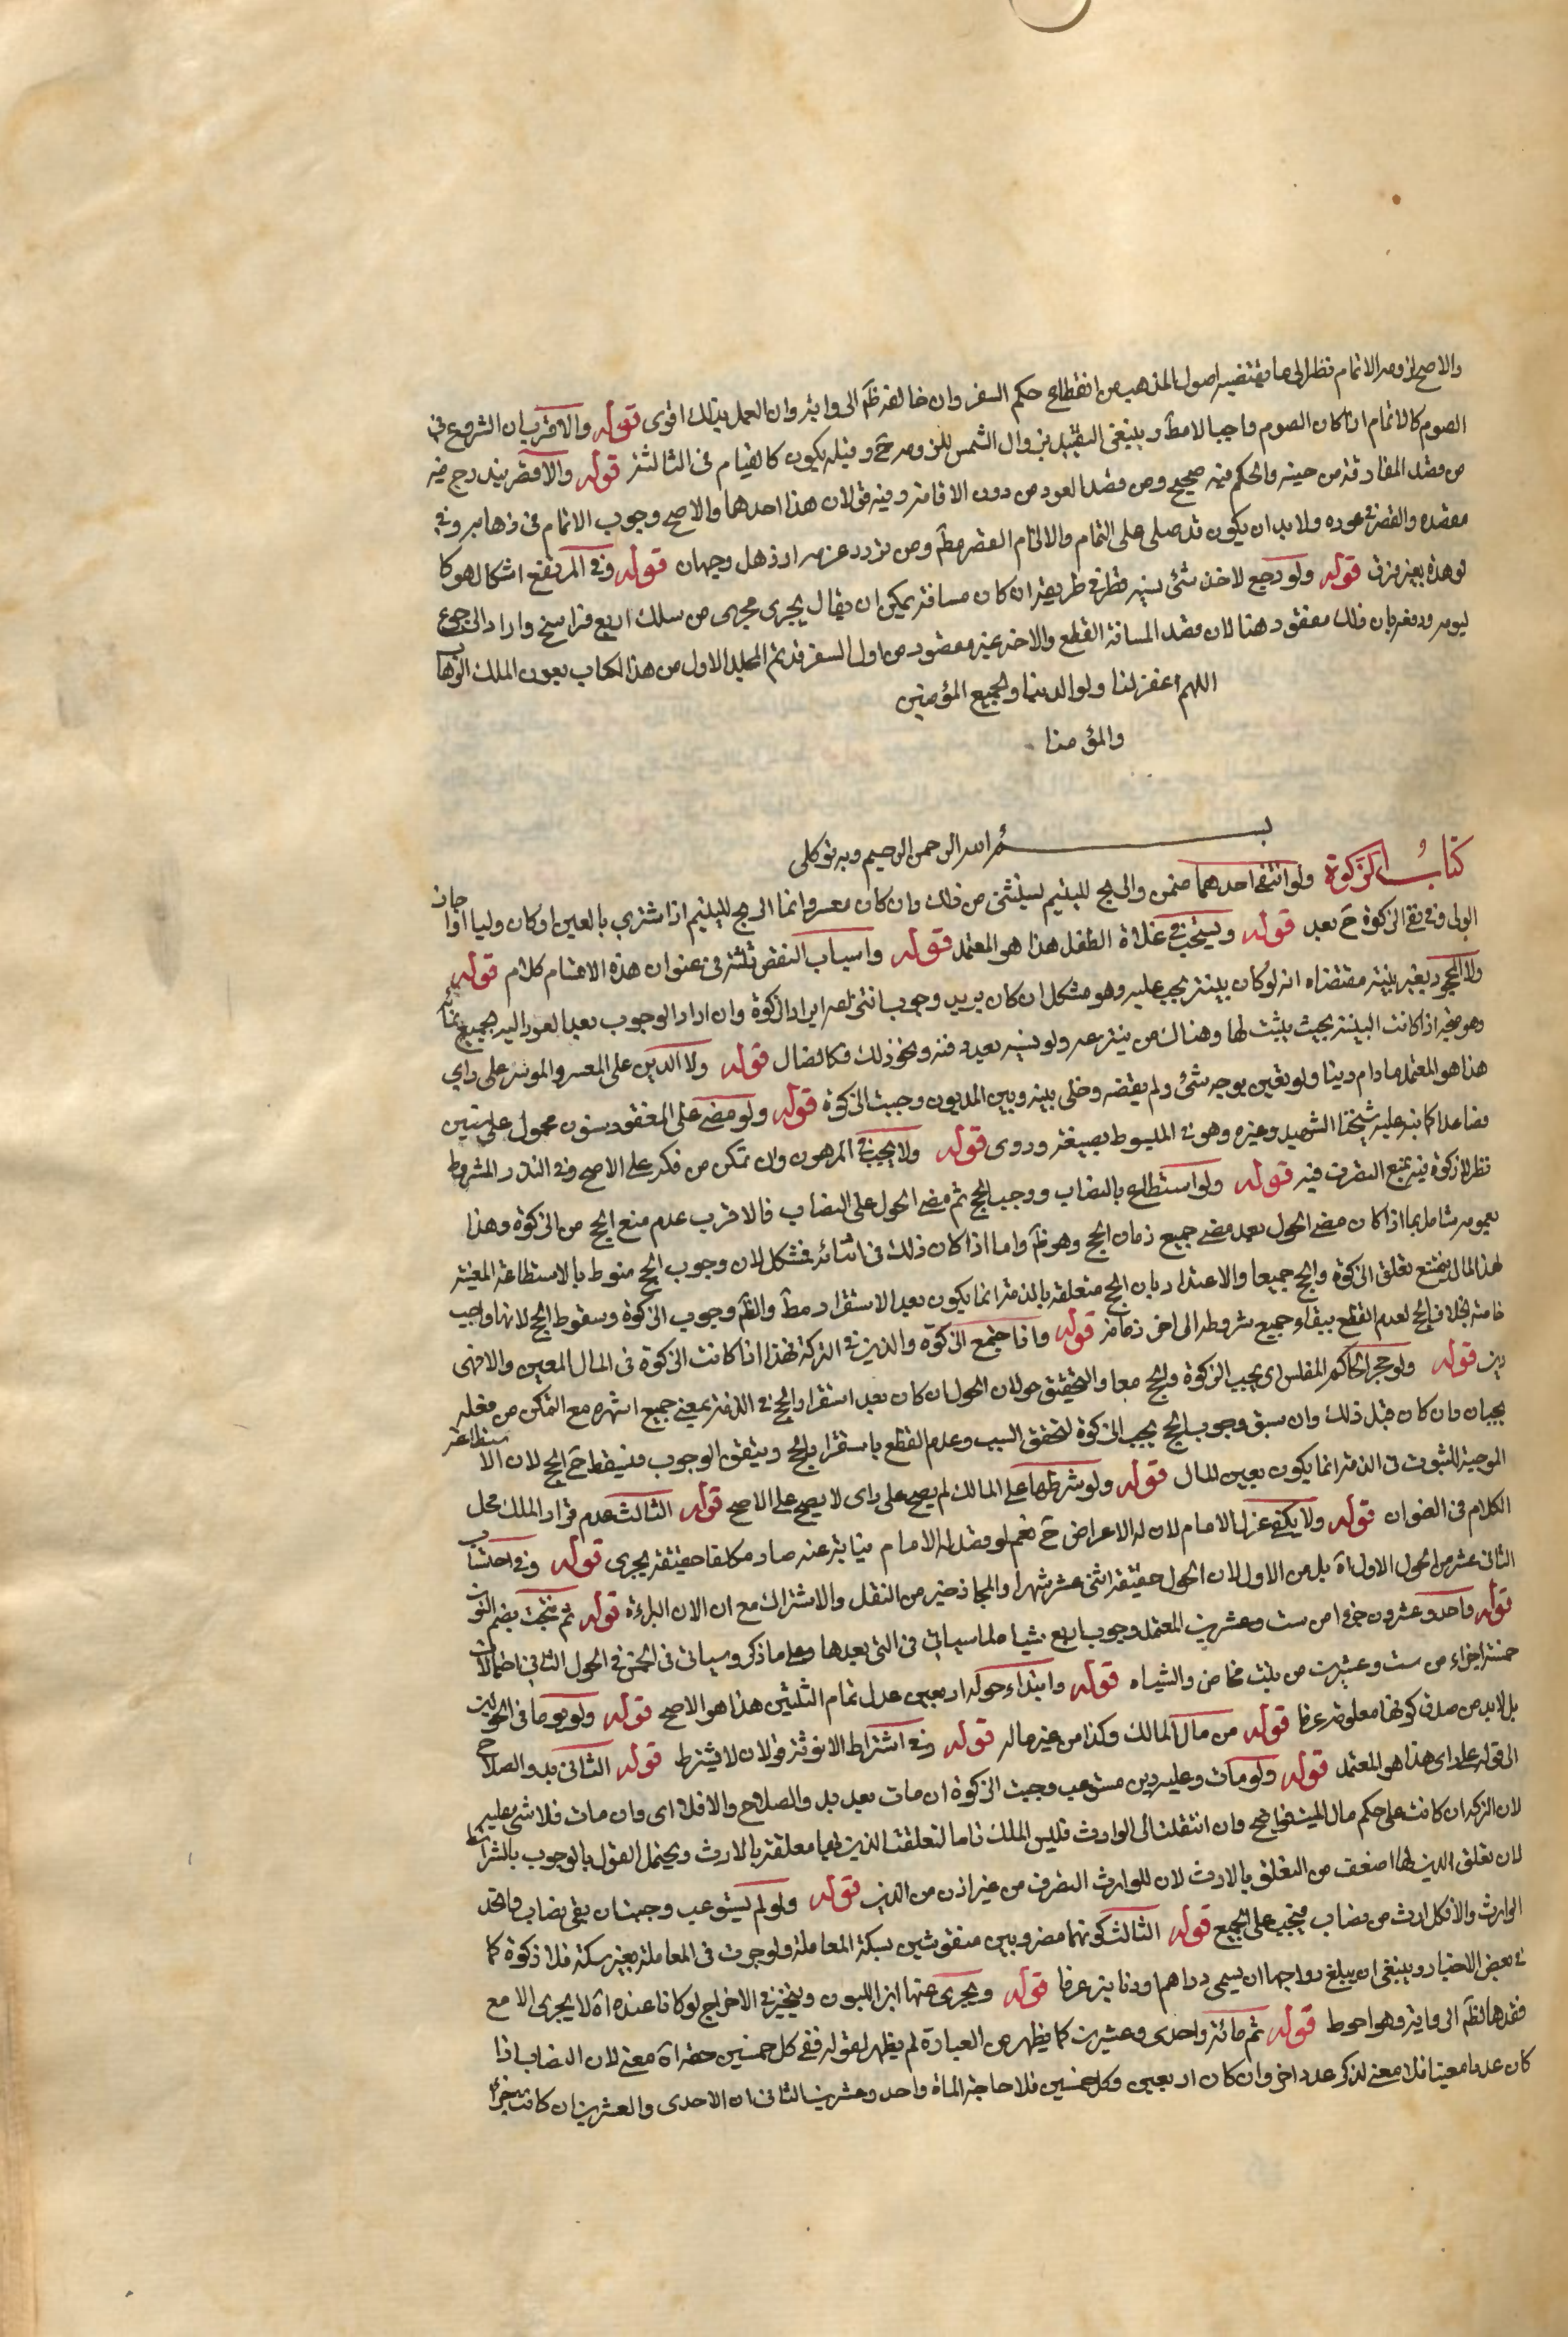 والاصح لزومه الاتمام نظرا الى ما يقتضيه اصول المذهب من انقطاع حكم السفر وان خالف ظم الرواية وان العمل بذلك اقوى قوله والاقرب ان الشروع في
الصوم كالاتمام اذا كان الصوم واجبا لا مط وينبغي التقييد بزوال الشمس للزومه ح وقبله يكون كالقيام في الثالثة قوله والاقصر يندرج فيه
من قصد المفارقة من حينه والحكم فيه صحيح ومن قصد العود من دون الاقامة وفيه قولان هذا احدهما والاصح وجوب الاتمام في ذهابه وفي
مقصده والقصر في عوده ولا بد ان يكون قد صلى على التمام والا التام القصر مط ومن تردد عزمه او ذهل وجهان قوله وفي المرتفع اشكال هو كا
لو هذه بغير فرق قوله ولو رجع لاخذ شئ نسيه قطر في طريقه ان كان مسافة يمكن ان يقال يجري مجرى من سلك اربع فراسخ واراد الرجوع
ليومه ودفعه بان ذلك مفقود هنا لان قصد المسافة القطع والاخر غير مقصود من اول السفر قد تم المجلد الاول من هذا الكتاب بعون الملك الوهاب
اللهم اغفر لنا ولوالدينا ولجميع المؤمنين
والمؤمنا
بسم الله الرحمن الرحيم وبه توكلى
كتاب الزكوة ولو انتفى احدهما ضمن والربح لليتيم ليستثنى من ذلك وان كان معسرا وانما الربح لليتيم اذا اشترى بالعين او كان وليا او اجاز
الولى وفي نفى الزكوة ح بعد قوله ويستحب في غلات الطفل هذا هو المعتمد قوله واسباب النقص ثلثة في عنوان هذه الاقسام كلام قوله
ولا المجحود بغير بينة مقتضاه انه لو كان بينة يجب عليه وهو مشكل ان كان يريد وجوب انتزاعه ايراد الزكوة وان اراد الوجوب بعد العود اليه لجميع
وهو متجه اذا كانت البينة بحيث يثبت لها وهناك من ينتزعه ولو نسيه بعد دفنه ونحو ذلك فكالضال قوله ولا الدين على المعسر والموسر على راي
هذا هو المعتمد ما دام دينا ولو تعين بوجه شئ ولم يقبضه وخلى بينه وبين المديون وجبت الزكوة قوله ولو مضى على المفقود سنون محمول على سنتين
فصاعدا كما نبه عليه شيخنا الشهيد وغيره وهو في المبسوط بصيغة وروى قوله ولا يجب في المرهون وان تمكن من فكه على الاصح وفي النذر المشروط
نظر لا زكوة فيه بمنع التصرف فيه قوله ولو استطاع بالنصاب ووجب الحج ثم مضى الحول على النصاب فالاقرب عدم منع الحج من الزكوة وهذا
بعمومه شامل بما اذا كان مضى الحول بعد مضى جميع زمان الحج وهو ظم واما اذا كان ذلك في اثنائه فمشكل لان وجوب الحج منوط بالاستطاعة المعينة
لهذا المال يمتنع تعلق الزكوة والحج جميعا والاعتذار بان الحج متعلقه بالذمة انما يكون بعد الاستقرار مط والظم وجوب الزكوة وسقوط الحج لانها واجب
خاصة بخلاف الحج لعدم القطع ببقاء جميع شروطه الى اخر زمانه قوله واذا اجتمع الزكوة والدين في التركة هذا اذا كانت الزكوة في المال المعين والا فهي
دين قوله ولو حجر الحاكم المفلس اى يجب الزكوة والحج معا والتحقيق هو لان الحول ان كان بعد استقرار الحج في الذمة بمعنى جميع اشهره مع التمكن من فعله
يجبان وان كان قبل ذلك وان سبق وجوب الحج يجب الزكوة لتحقق السبب وعدم القطع باستقرار الحج وينتفى الوجوب فيسقط ح الحج لان الاستطاعة
الموجبة للثبوت في الذمة انما يكون بعين المال قوله ولو شرطها على المالك لم يصح على راى لا يصح على الاصح قوله الثالث عدم قرار الملك محل
الكلام في الضوان قوله ولا يكفى عزل الامام لان له الاعراض ح نعم لو قصد له الامام نيابة عنه صار مكلفا حقيقة يجرى قوله وفي احتساب
الثاني عشر من الحول الاول اه بل من الاول لان الحول حقيقة اثني عشر شهرا والمجاز خير من النقل والاشتراك مع ان الان البراءة قوله ثم نتجت بضم النون
قوله واحد وعشرون جزءا من ست وعشرين المعتمد وجوب اربع شياه لما سياتي في التى بعدها وعلى ما ذكر وسياتي في الخمس في الحول الثاني احتمالات
خمسة اجزاء من ست وعشرين من بنت مخاض والشياه قوله وابتداء حول اربعين عدل تمام الثلثين هذا هو الاصح قوله ولو يوما في الحولين
بل لا بد من صدق كونها معلوفة عرفا قوله من مال المالك وكذا من غير ماله قوله وفي اشتراط الانوثة قولان لا يشترط قوله الثاني بدو الصلاح
الى قوله على راى هذا هو المعتمد قوله ولو مات وعليه دين مستوعب وجبت الزكوة ان مات بعد بدو الصلاح والا فلا اى وان مات فلا شئ عليه
لان التركة ان كانت على حكم مال الميت فواضح وان انتقلت الى الوارث فليس الملك تاما لتعلقت الدين بها معلقة بالارث ويحتمل القول بالوجوب بالشرائط
لان تعلق الدين لها اضعف من التعلق بالارث لان للوارث التصرف من غير اذن من الدين قوله ولو لم يستوعب وجبت ان بقى نصاب واتحد
الوارث والا فكل ارث من نصاب فيجب على الجميع قوله الثالث كونهما مضروبين منقوشين بسكة المعاملة ولو جرت في المعاملة بغير سكة فلا زكوة كما
في بعض الاخبار وينبغي ان يبلغ رواجها ان يسمى دراهم ودنانير عرفا قوله ويجزى عنها ابن اللبون ويتخير في الاخراج لو كانا عنده اه لا يجزى الا مع
فقدها لظم الرواية وهو احوط قوله ثم مائة واحدى وعشرين كما يظهر من العبارة لم يظهر لقوله ففى كل خمسين حقة اه معنى لان النصاب اذا
كان عددا معينا فلا معنى لذكر عدد اخر وان كان اربعين وكل خمسين فلا حاجة الماة واحد وعشرين الثاني ان الاحدى والعشرين ان كانت جزأ